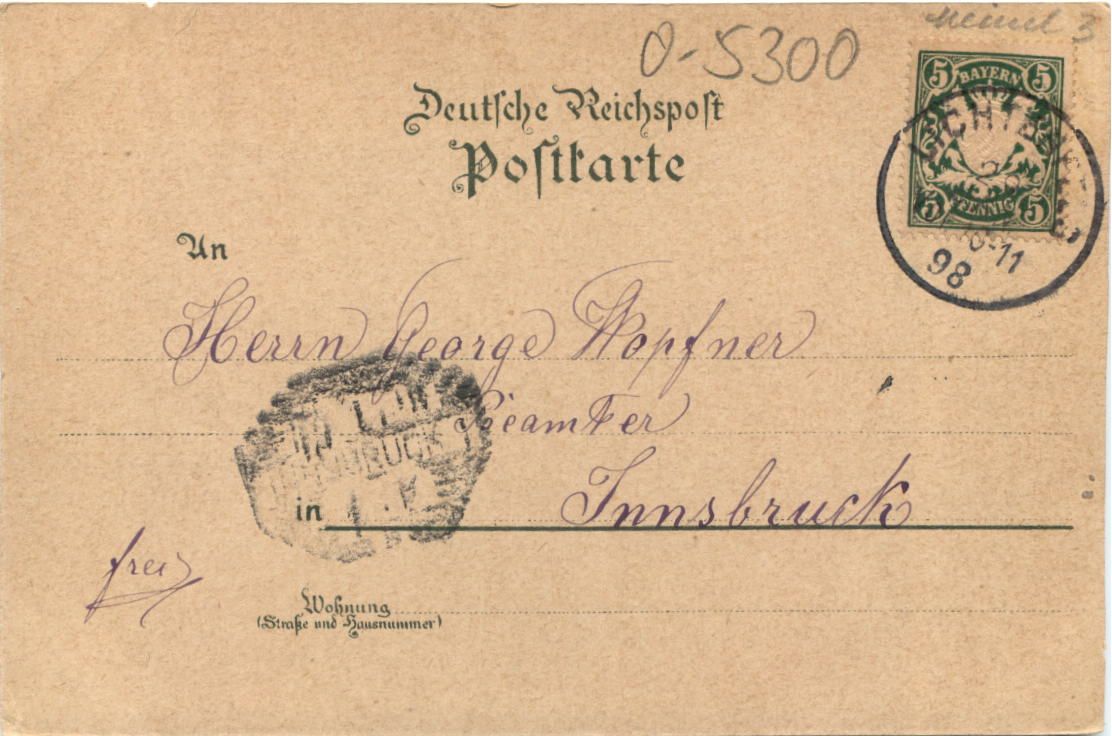 Meinel 3
0-5300
Deutsche Reichspost
Postkarte
5 BAYERN 5
5 PFENNIG 5
98
An
Herrn George Hopfner
Beamter
INNSBRUCK
in Innsbruck
frei
Wohnung
(Straße und Hausnummer)